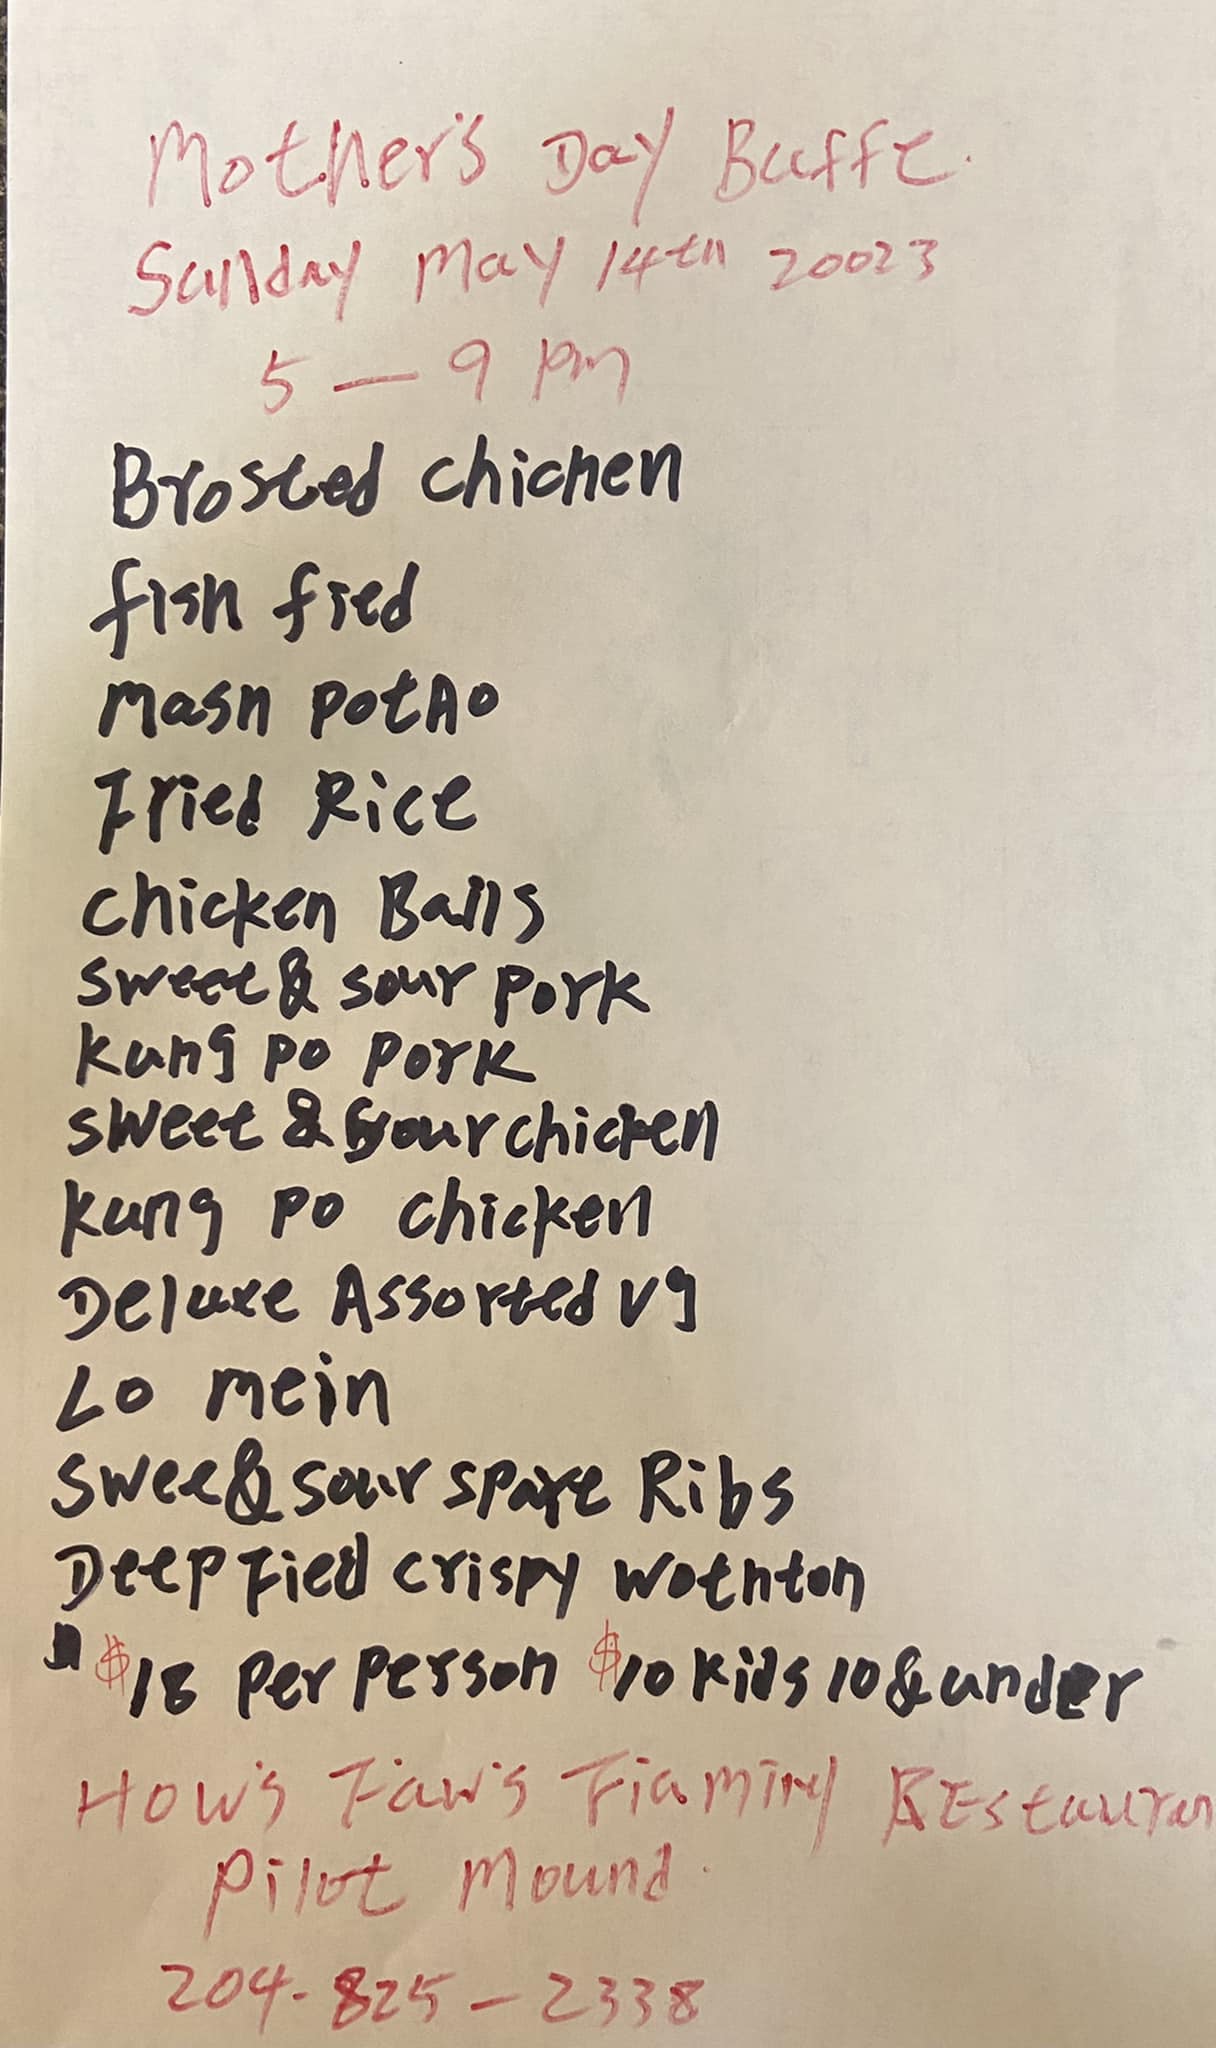 Mother's Day Buffe
Sunday May 14th 20023
5 — 9 pm
Brosted chichen
fish fied
Mash potAo
Fried Rice
chicken Balls
sweet & sour pork
kung po pork
sweet & sour chicken
kung po chicken
Deluxe Assorted vg
Lo mein
swee & sour spare Ribs
Deep Fied crispy wothton
$18 per person $10 kids 10 & under
How's Faw's Restauran
pilot mound
204-825-2338